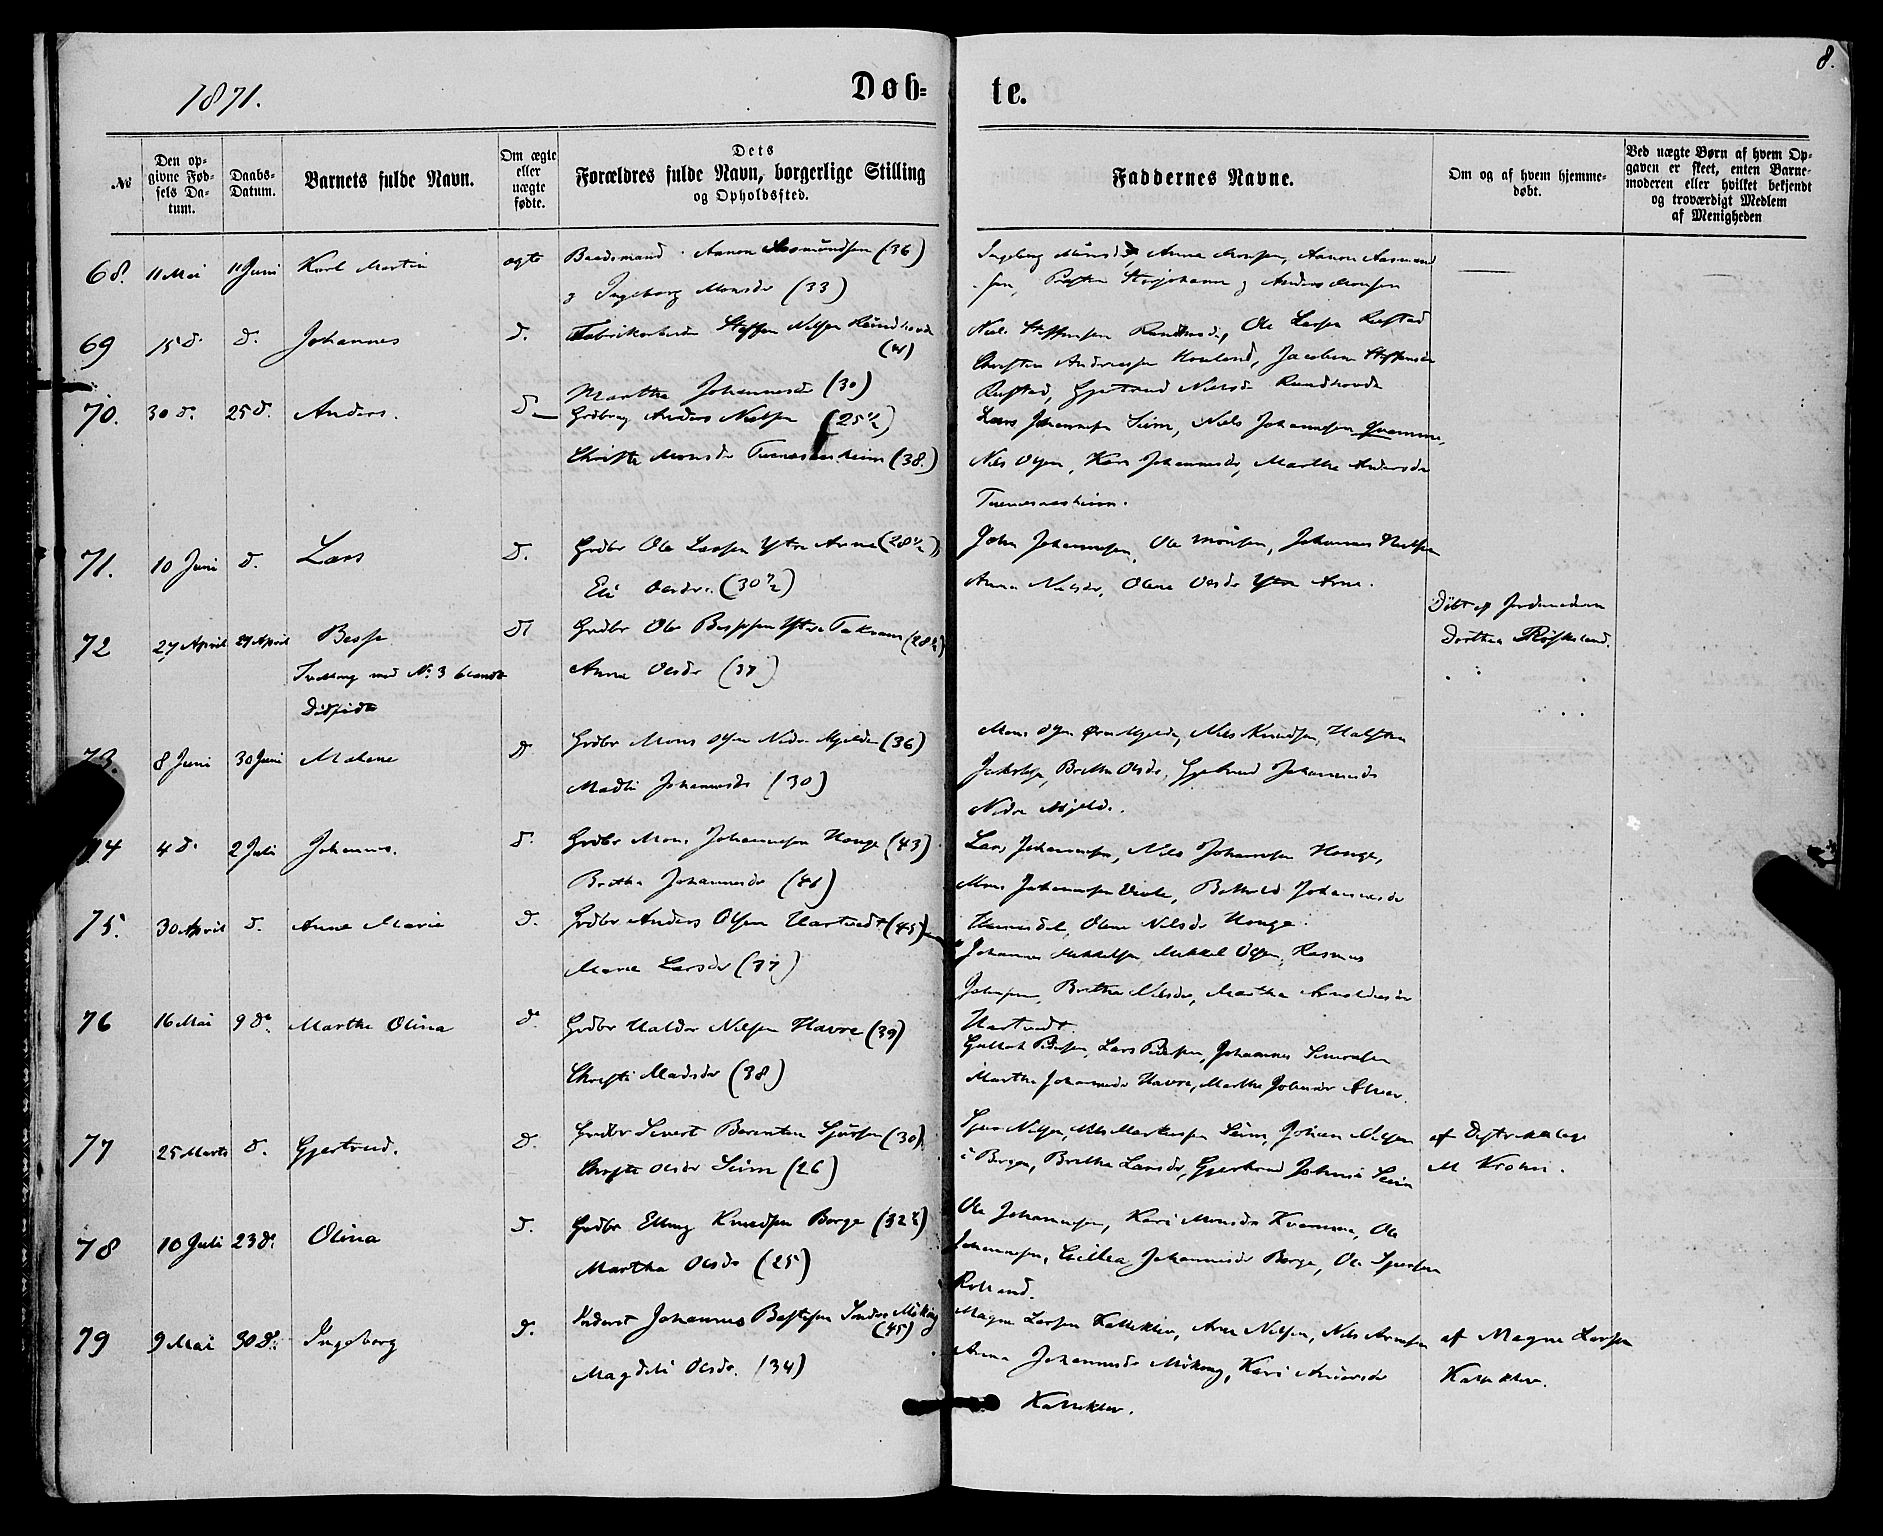 8.
1871.
Døb-
te.
№
Den op-
givne Fød-
sels Da-
tum.
Daabs-
Datum.
Barnets fulde Navn.
Om ægte
eller
uægte
fødte.
Dets
Forældres fulde Navn, borgerlige Stilling
og Opholdssted.
Faddernes Navne.
Om og af hvem hjemme-
døbt.
Ved uægte Børn af hvem Op-
gaven er skeet, enten Barne-
moderen eller hvilket bekjendt
og troværdigt Medlem
af Menigheden
68. 11 Mai 11 Juni Karl Martin ægte Baadsmand Aamon Aasmundsen (36)
& Ingeborg Monsdr (33)
Anna Monsen, Aamon Aasmund
sen, & Anders Monsen
69 15 d. d. Johannes d. Fabrikarbeider Steffen Nielsen Rundhovde
Martha Johannesdr (30)
Niels Steffensen Rundhovde, Ole Larsen Rufstad
Andreassen Houland, Jacobine Steffensdr
Rufstad, Gjertrud Nielsdr Rundhovde
70. 30 d. 25 d. Anders. d. Grdbrug Anders Nielsen (25½)
Christi Monsdr Tunesaasheim (38.)
Lars Johannesen Seim, Niels Johannesen Qvamme,
Nils Olsen, Kari Johannesdr, Martha Andersdr
Tunesaasheim.
71. 10 Juni d. Lars d. Grdbr Ole Larsen Ytre Arne (28½)
Eli Olesdr. (30½)
John Johannesen, Ole Monsen, Johannes Nielsen
Anna Nielsdr, Oline Olesdr Ytre Arne.
72 27 April 27 April Besse d Grdbr Ole Bessesen Ytre Takvam (28½)
Tvilling med No 3 blandt
Dødfødte
Anna Olesdr (37)
Døbt af Jordemoderen
Dorthea Røskeland.
73. 8 Juni 30 Juni Malene d Grdbr Mons Olsen Nedre Mjelde (36)
Madli Johannesdr (30)
Mons Olsen Øvre Mjelde, Niels Knudsen, Halsten
Jakobsen, Britha Olesdr, Gjertrud Johannesdr
Nedre Mjelde.
74 4 d. 2 Juli Johannes. d. Grdbr Mons Johannesen Hauge (43)
Britha Johannesdr (41)
Lars Johannesen, Nils Johannesen Hauge,
Mons Johannesen Johannesdr
Oline Nilsdr Hauge.
75. 30 April d. Anne Marie d. Grdbr Anders Olsen Hartvedt (45)
Marie Larsdr (37)
Johannes Mikkelsen, Mikkel Olsen, Rasmus
Johnsen, Britha Nilsdr, Martha Arnoldusdr
Hartvedt.
76 16 Mai 9 d. Martha Olina d. Grdbr Haldor Nilsen Havre (39)
Christi Madsdr (38)
Pedersen, Lars Pedersen, Johannes
Martha Johannesdr Havre, Martha Johnsdr
77 25 Marts d. Gjertrud. d. Grdbr Sivert Berentsen (30)
Christi Olesdr Seim (26)
Nilsen, Nils Markussen Seim, Johan Nilsen
i Bergen, Britha Larsdr, Gjertrud Johnsdr Seim
af Distriktslæge
M Krohn.
78 10 Juli 23 d. Olina d. Grdbr Elling Knudsen Borge (32½)
Martha Olesdr (25)
Ole Johannesen, Kari Monsdr Kvamme, Ole
Johannesen, Johannesdr Borge, Ole Sjursen
Rolland.
79 9 Mai 30 d. Ingeborg d. Inderst Johannes (45)
Magdeli Olesdr. (34)
Magne Larsen Kallekleiv, Arne Nilsen, Nils Arnesen
Anna Johannesdr Miking, Kari Andersdr
Kallekleiv.
af Magne Larsen
Kallekleiv.